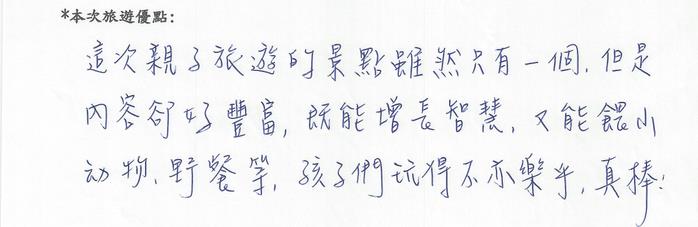 *本次旅遊優點:
這次親子旅遊的景點雖然只有一個,但是
內容卻好豐富,既能增長智慧,又能餵小
动物、野餐等,孩子們玩得不亦樂乎,真棒!